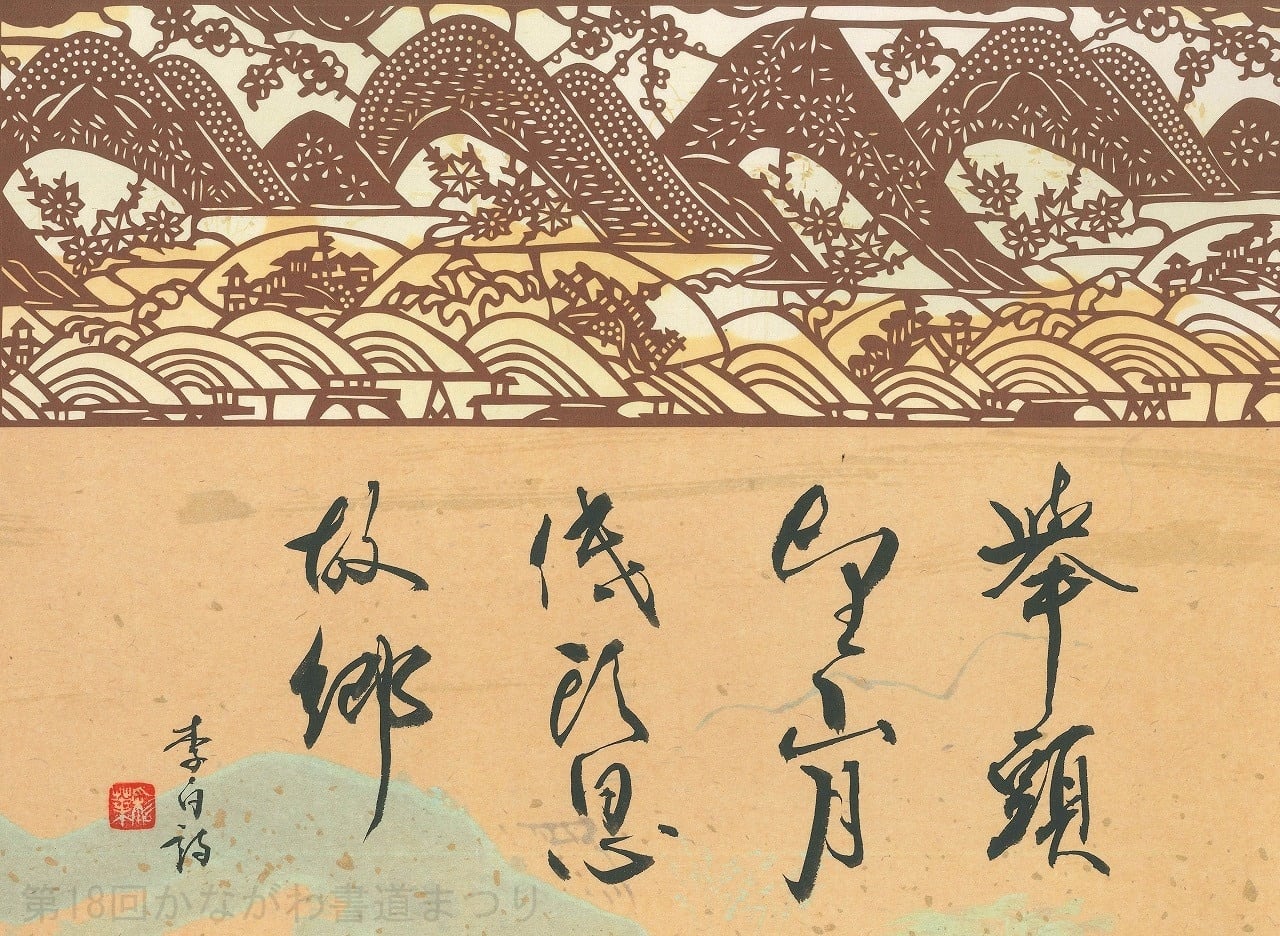 舉頭
望山月
低頭思
故郷
李白詩
彩葉
第18回かながわ書道まつり